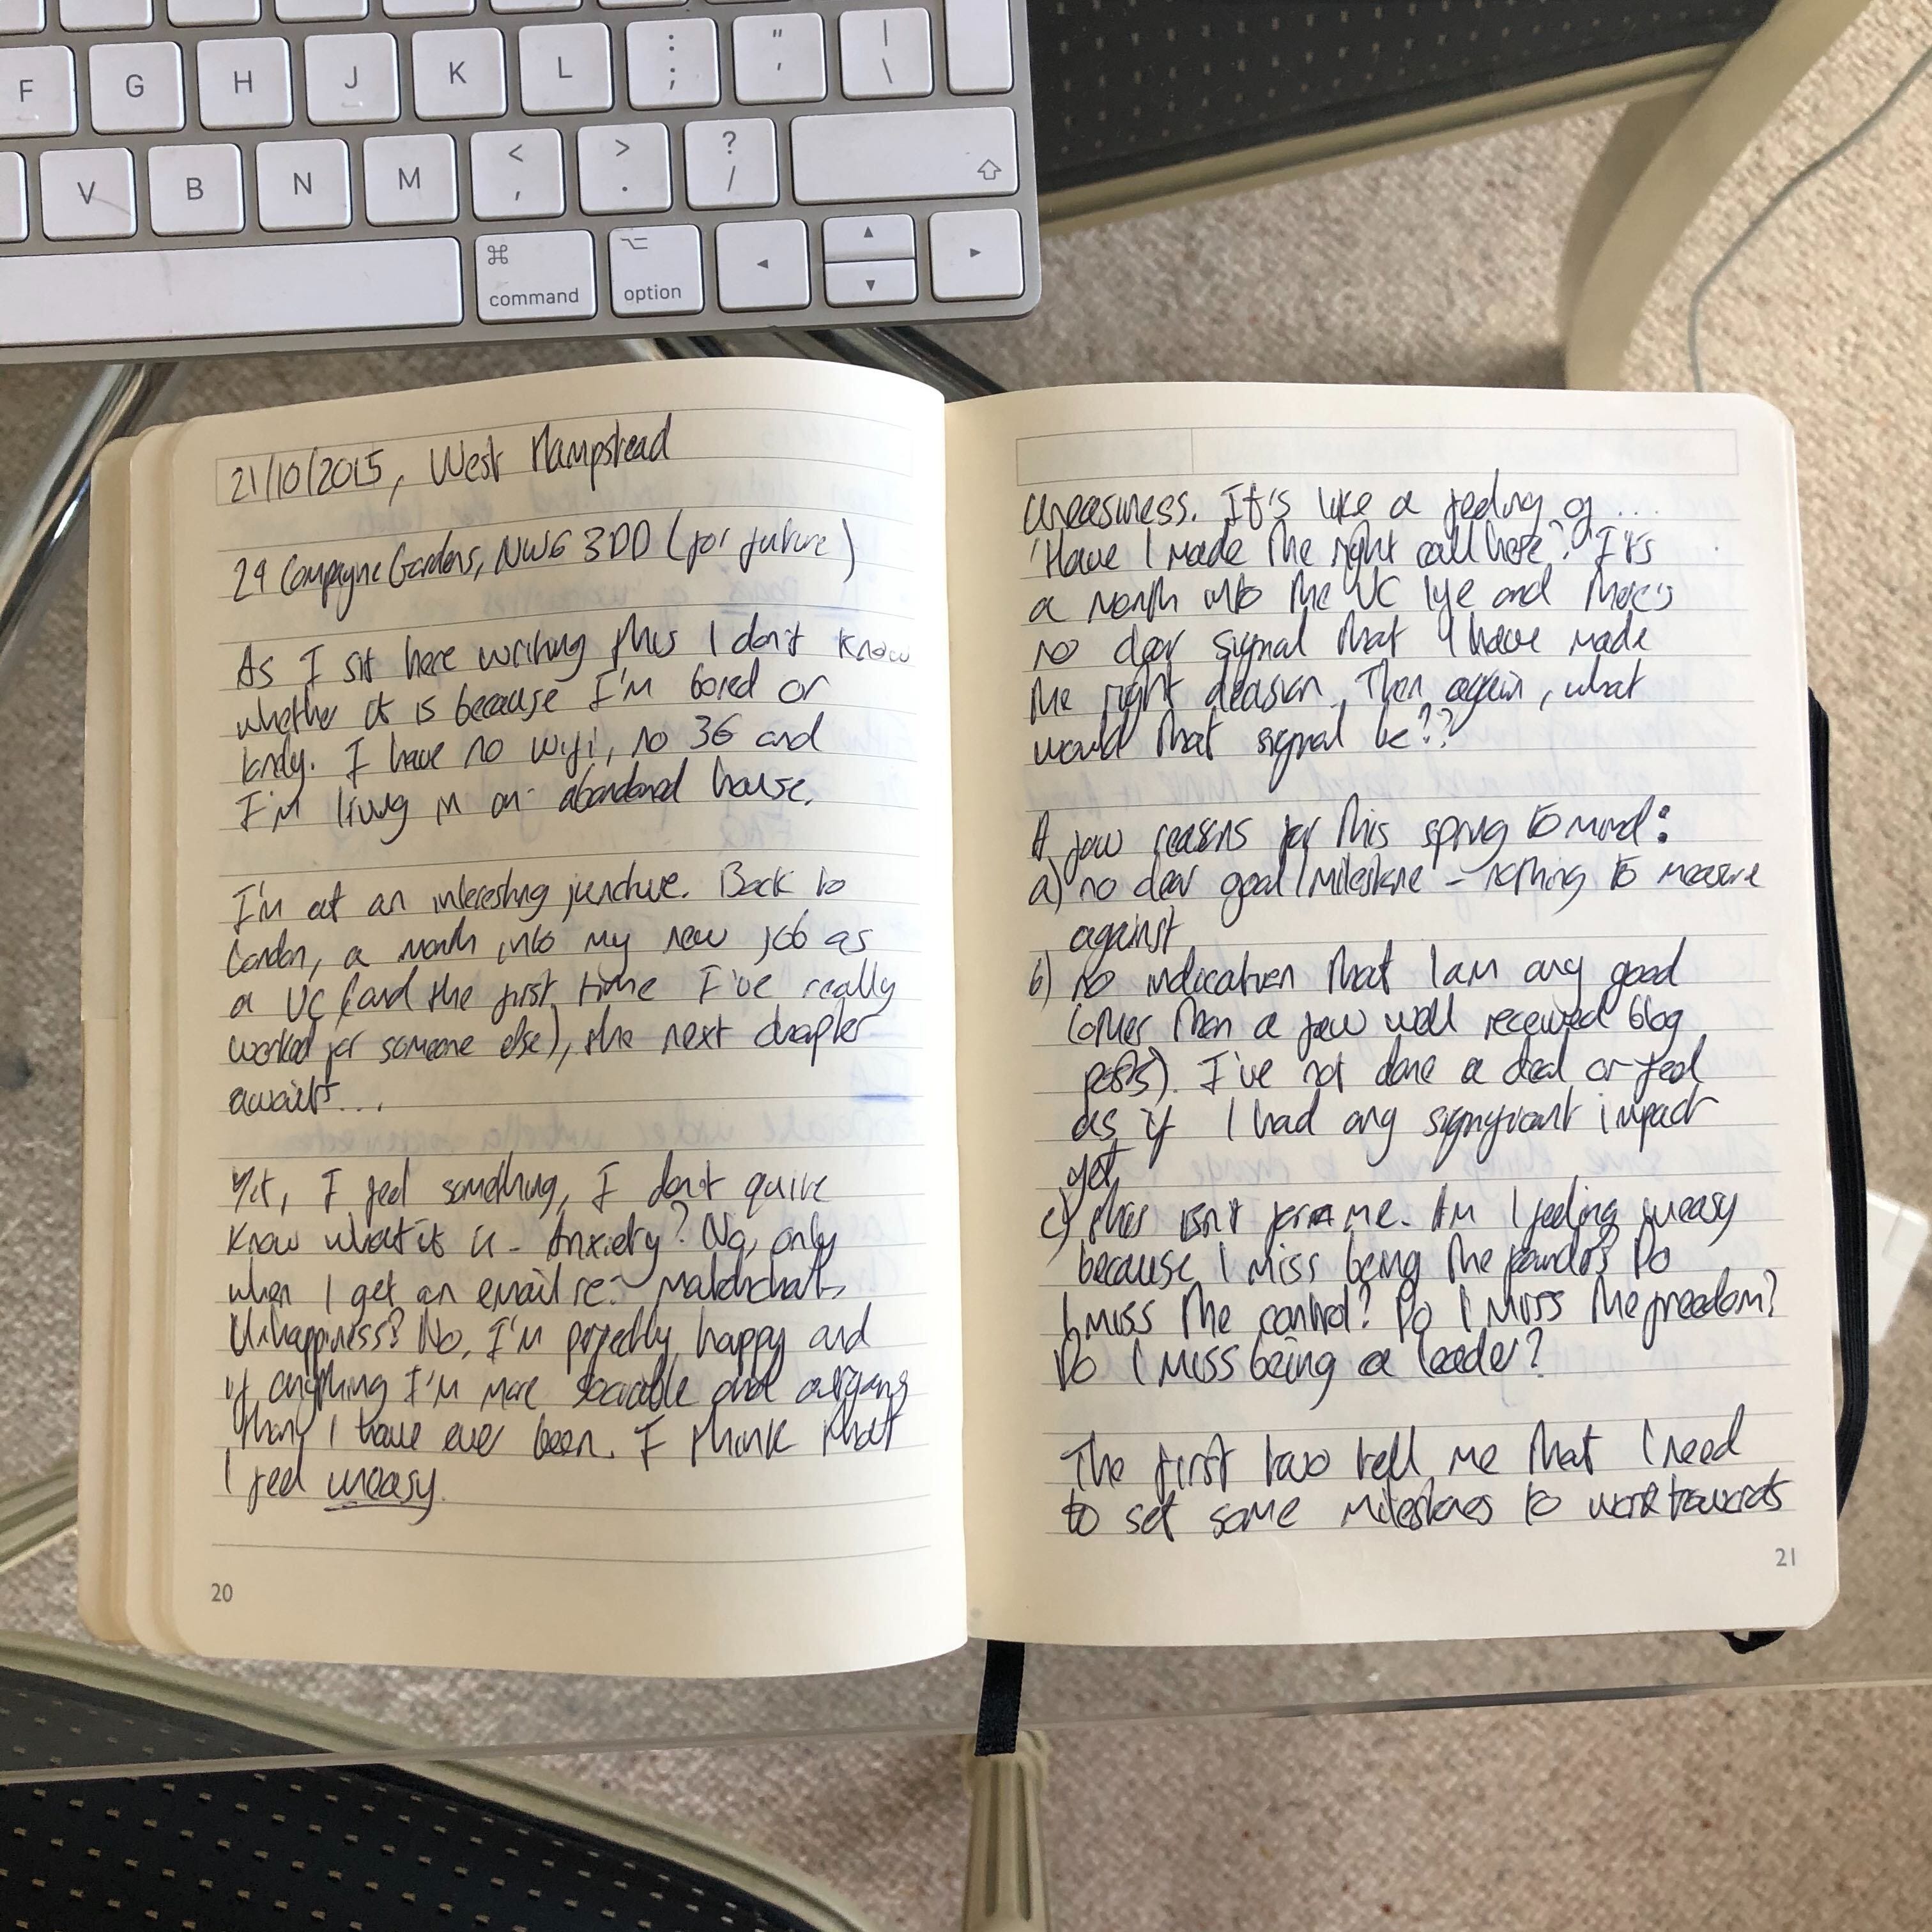 F G H J K L : ; " ' | \
V B N M < , > . ? /
⌘ command ⌥ option
21/10/2015, West Hampstead
29 Compayne Gardens, NW6 3DD (for future)
As I sit here writing this I don't know
whether it is because I'm bored or
lonely. I have no wifi, no 3G and
I'm living in an abandoned house.
I'm at an interesting juncture. Back to
London, a month into my new job as
a VC (and the first time I've really
worked for someone else), the next chapter
awaits...
Yet, I feel something, I don't quite
know what it is - Anxiety? No, only
when I get an email re:- Matchchat.
Unhappiness? No, I'm perfectly happy and
if anything I'm more sociable and outgoing
than I have ever been. I think that
I feel uneasy.
20
Uneasiness. It's like a feeling of...
'Have I made the right call here?' It's
a month into the VC life and there's
no clear signal that I have made
the right decision. Then again, what
would that signal be??
A few reasons for this spring to mind:
a) no clear goal/milestone - nothing to measure
against
b) no indication that I am any good
(other than a few well received blog
posts). I've not done a deal or feel
as if I had any significant impact
yet
c) this isn't for me. Am I feeling uneasy
because I miss being the founder? Do
I miss the control? Do I miss the freedom?
Do I miss being a leader?
The first two tell me that I need
to set some milestones to work towards
21